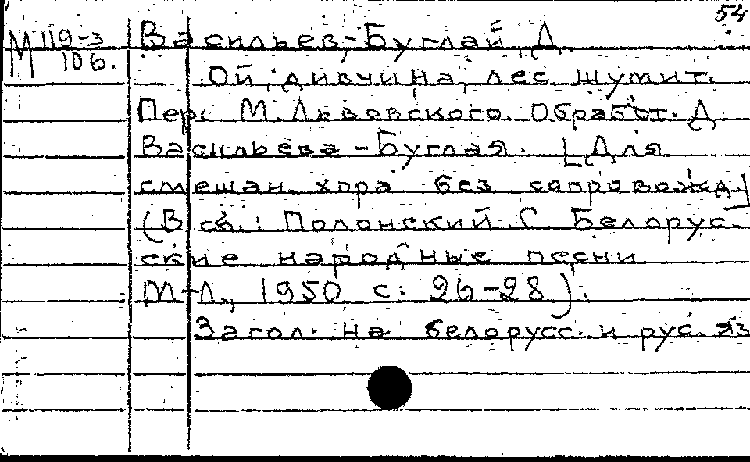 54
М 119-3
106.
Васильев-Буглай, Д.
Ой, дивчина, лес шумит.
Пер. М. Львовского. Обработ. Д.
Васильева-Буглая. [Для
смешан. хора без сопровожд.]
(В сб.: Полонский С. Белорус-
ские народные песни.
М-Л., 1950 с. 26-28).
Загол. на белорусс. и рус. яз.